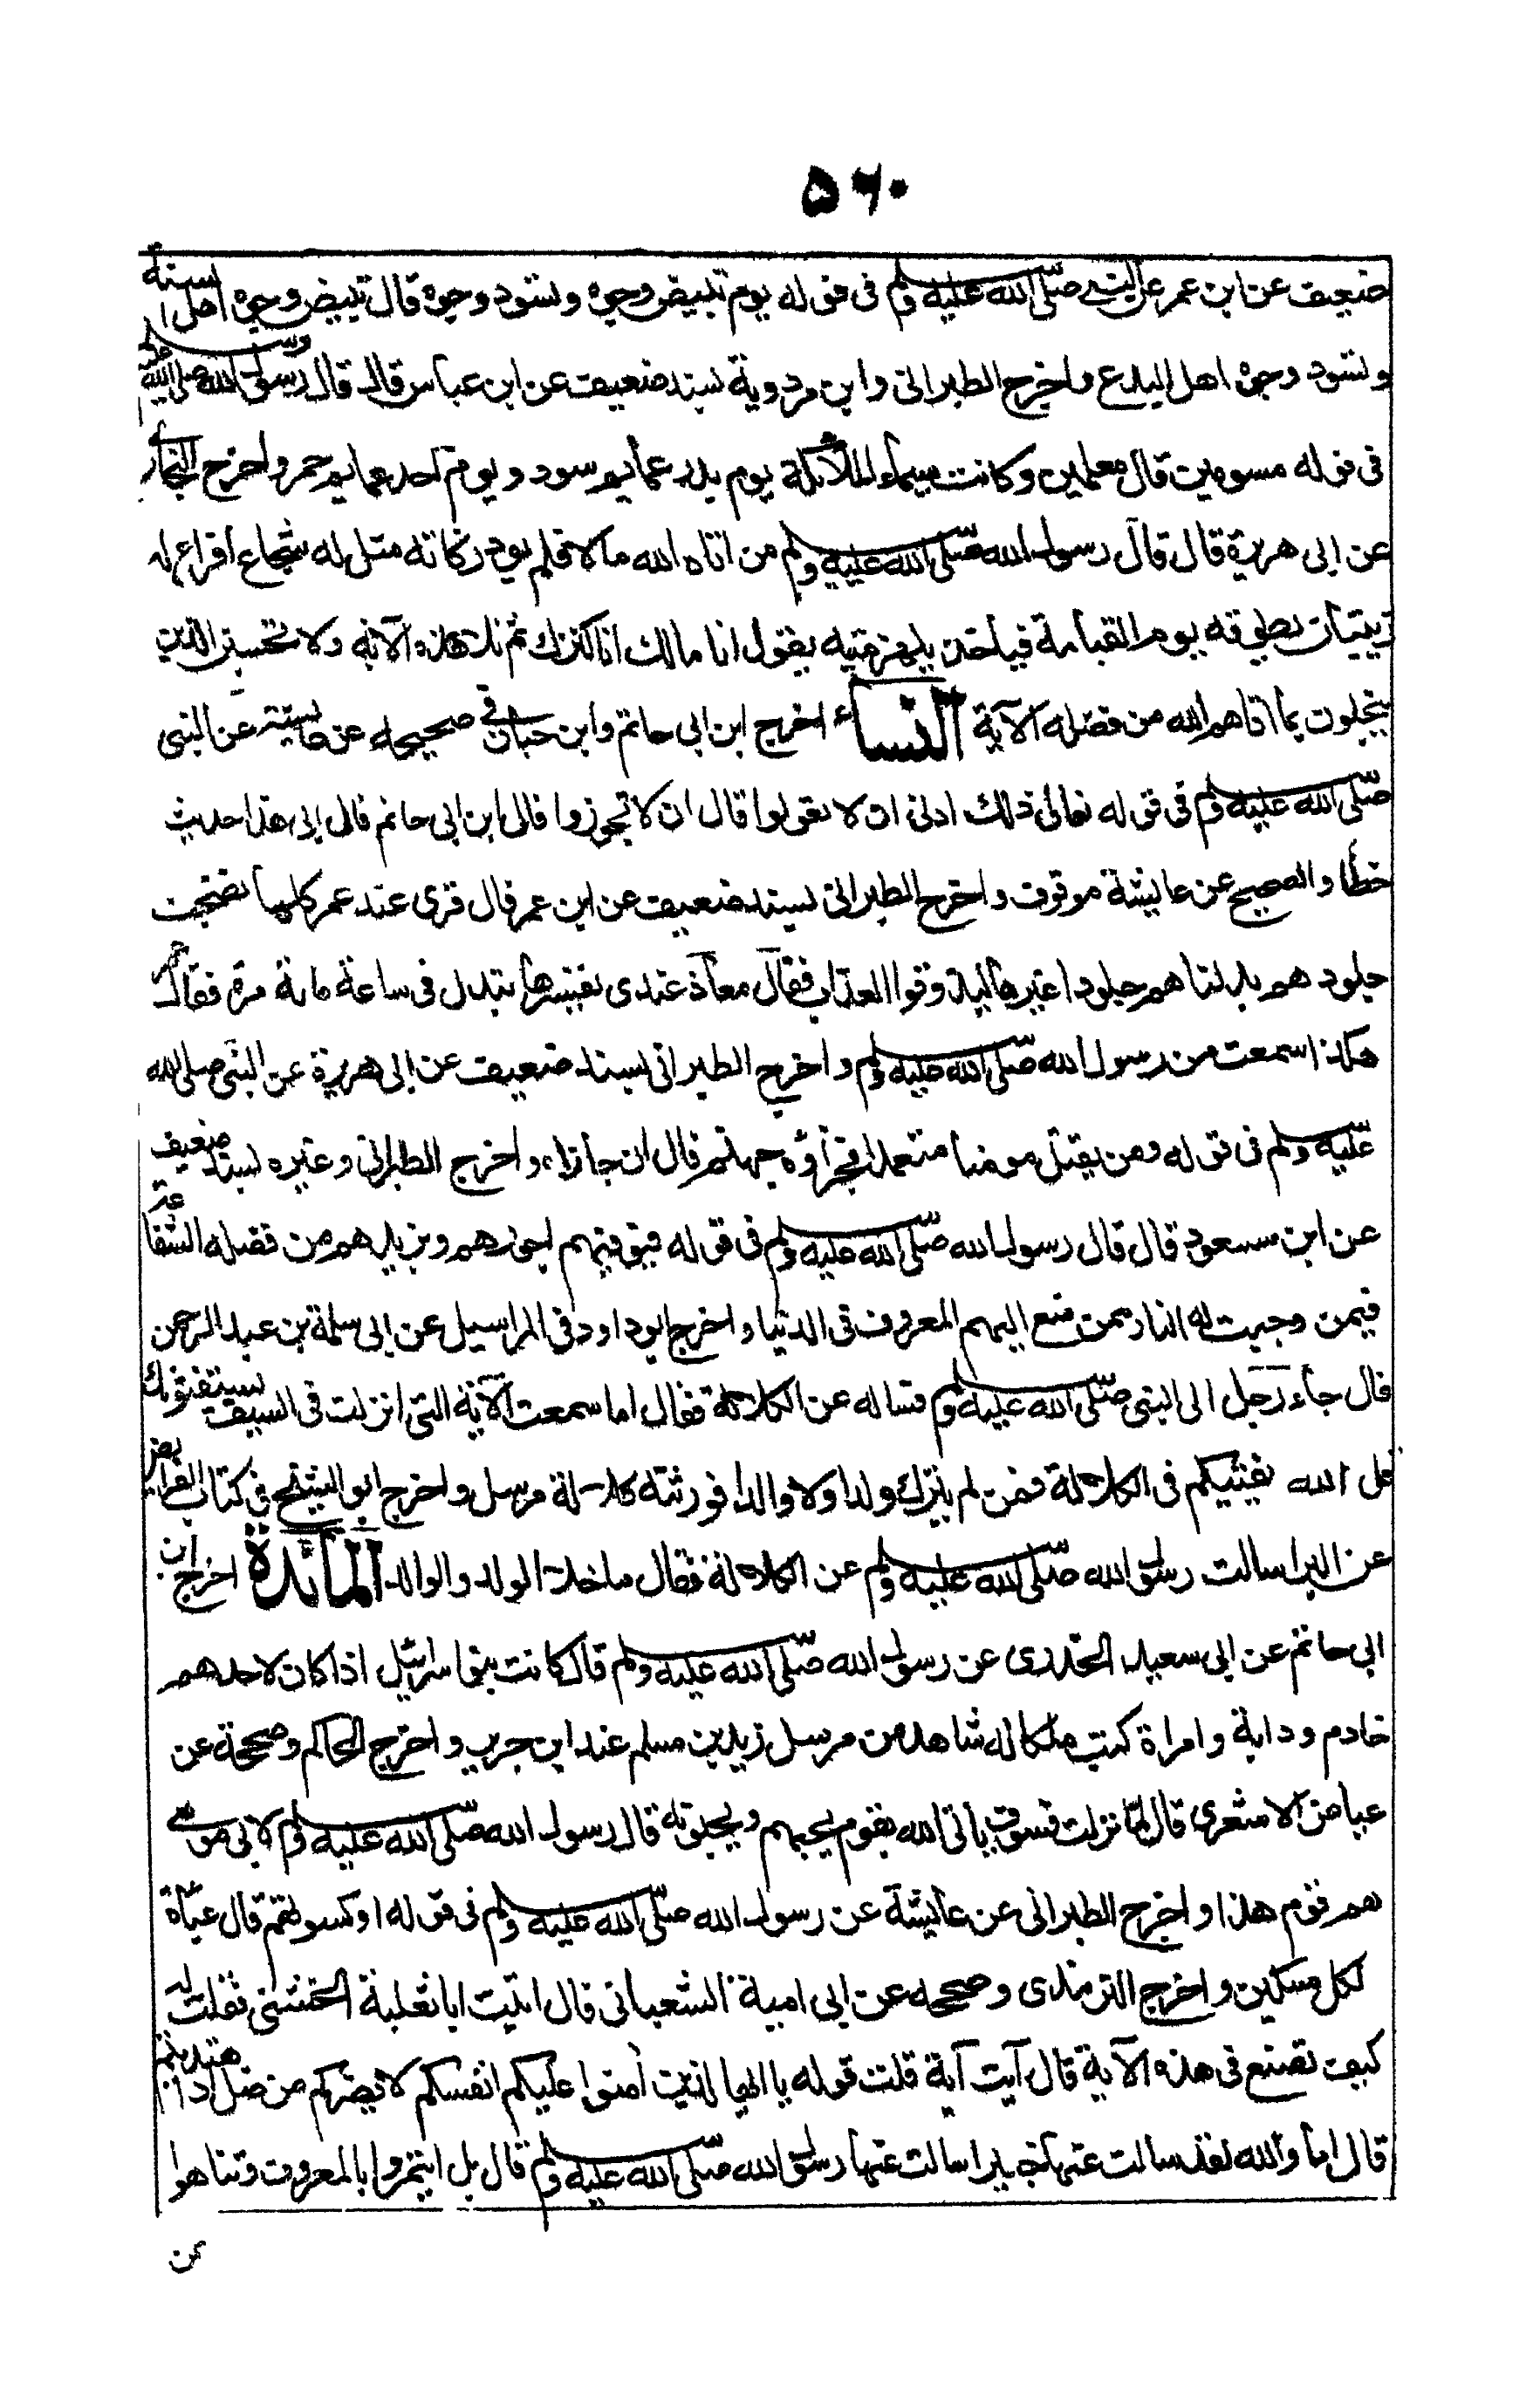 ۵۶۰
ضعيف عن ابن عمر عن النبي صلى الله عليه وسلم فى قوله يوم تبيض وجوه وتسود وجوه قال تبيض وجوه اهل السنة
وتسود وجوه اهل البدع واخرج الطبرانى وابن مردوية بسند ضعيف عن ابن عباس قال قال رسول الله صلى الله عليه وسلم
فى قوله مسومين قال معلمين وكانت سيماء الملائكة يوم بدر عمائم سود ويوم احد عمايم حمر واخرج البخارى
عن ابى هريرة قال قال رسول الله صلى الله عليه وسلم من اتاه الله مالا فلم يود زكاته مثل له شجاع اقرع له
زبيبتان يطوقه يوم القيامة فياخذ بلهزمتيه يقول انا مالك انا كنزك ثم تلا هذه الآية ولا تحسبن الذين
يبخلون بما اتاهم الله من فضله الآية النساء اخرج ابن ابى حاتم وابن حبان فى صحيحه عن عايشة عن النبى
صلى الله عليه وسلم فى قوله تعالى ذلك ادنى ان لا تعولوا قال ان لا تجوزوا قال ابن ابى حاتم قال ابى هذا حديث
خطأ والصحيح عن عايشة موقوف واخرج الطبرانى بسند ضعيف عن ابن عمر قال قرى عند عمر كلما نضجت
جلود هم بدلناهم جلودا غيرها ليذوقوا العذاب فقال معاذ عندى تفسيرها تبدل فى ساعة مائة مرة فقال عمر
هكذا سمعت من رسول الله صلى الله عليه وسلم واخرج الطبرانى بسند ضعيف عن ابى هريرة عن النبى صلى الله
عليه وسلم فى قوله ومن يقتل مومنا متعمدا فجزاؤه جهنم قال ان جازاه واخرج الطبرانى وغيره بسند ضعيف
عن ابن مسعود قال قال رسول الله صلى الله عليه وسلم فى قوله فيوفيهم اجورهم ويزيدهم من فضله الشفاعة
فيمن وجبت له النار ممن صنع اليهم المعروف فى الدنيا واخرج ابو داود فى المراسيل عن ابى سلمة بن عبد الرحمن
قال جاء رجل الى النبى صلى الله عليه وسلم فساله عن الكلالة فقال اما سمعت الآية التى انزلت فى الصيف يستفتونك
قل الله يفتيكم فى الكلالة فمن لم يترك ولدا ولا والدا فورثته كلالة مرسل واخرج ابو الشيخ فى كتاب الفرايض
عن البرا سالت رسول الله صلى الله عليه وسلم عن الكلالة فقال ما خلا الولد والوالد المائدة اخرج ابن
ابى حاتم عن ابى سعيد الخدرى عن رسول الله صلى الله عليه وسلم قال كانت بنوا سرائيل اذا كان لاحدهم
خادم ودابة وامراة كتب ملكا له شاهد من مرسل زيد بن مسلم عند ابن جرير واخرج الحاكم وصححة عن
عياض الاشعرى قال لما نزلت فسوف ياتى الله بقوم يحبهم ويحبونه قال رسول الله صلى الله عليه وسلم لابى موسى
هم قوم هذا واخرج الطبرانى عن عائشة عن رسول الله صلى الله عليه وسلم فى قوله او كسوتهم قال عباءة
لكل مسكين واخرج الترمذى وصححه عن ابى امية الشعبانى قال اتيت ابا ثعلبة الخشنى فقلت له
كيف تصنع فى هذه الآية قال آيت آية قلت قوله يا ايها الذين آمنوا عليكم انفسكم لا يضركم من ضل اذا اهتديتم
قال اما والله لقد سالت عنها خبيرا سالت عنها رسول الله صلى الله عليه وسلم قال بل ايتمروا بالمعروف وتناهوا
عن